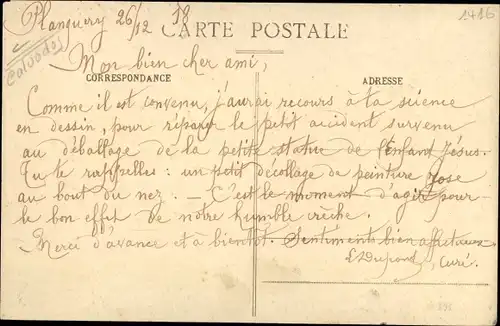 Planquery 26/12 18
1416
Calvados
CARTE POSTALE
Mon bien cher ami,
CORRESPONDANCE
ADRESSE
Comme il est convenu, j'aurai recours à ta science
en dessin, pour réparer le petit accident survenu
au déballage de la petite statue de l'enfant Jésus.
Tu te rappelles : un petit décollage de peinture rose
au bout du nez. — C'est le moment d'agir pour
le bon effet de notre humble crèche.
Merci d'avance et à bientôt. Sentiments bien affectueux
E Dupont, Curé.